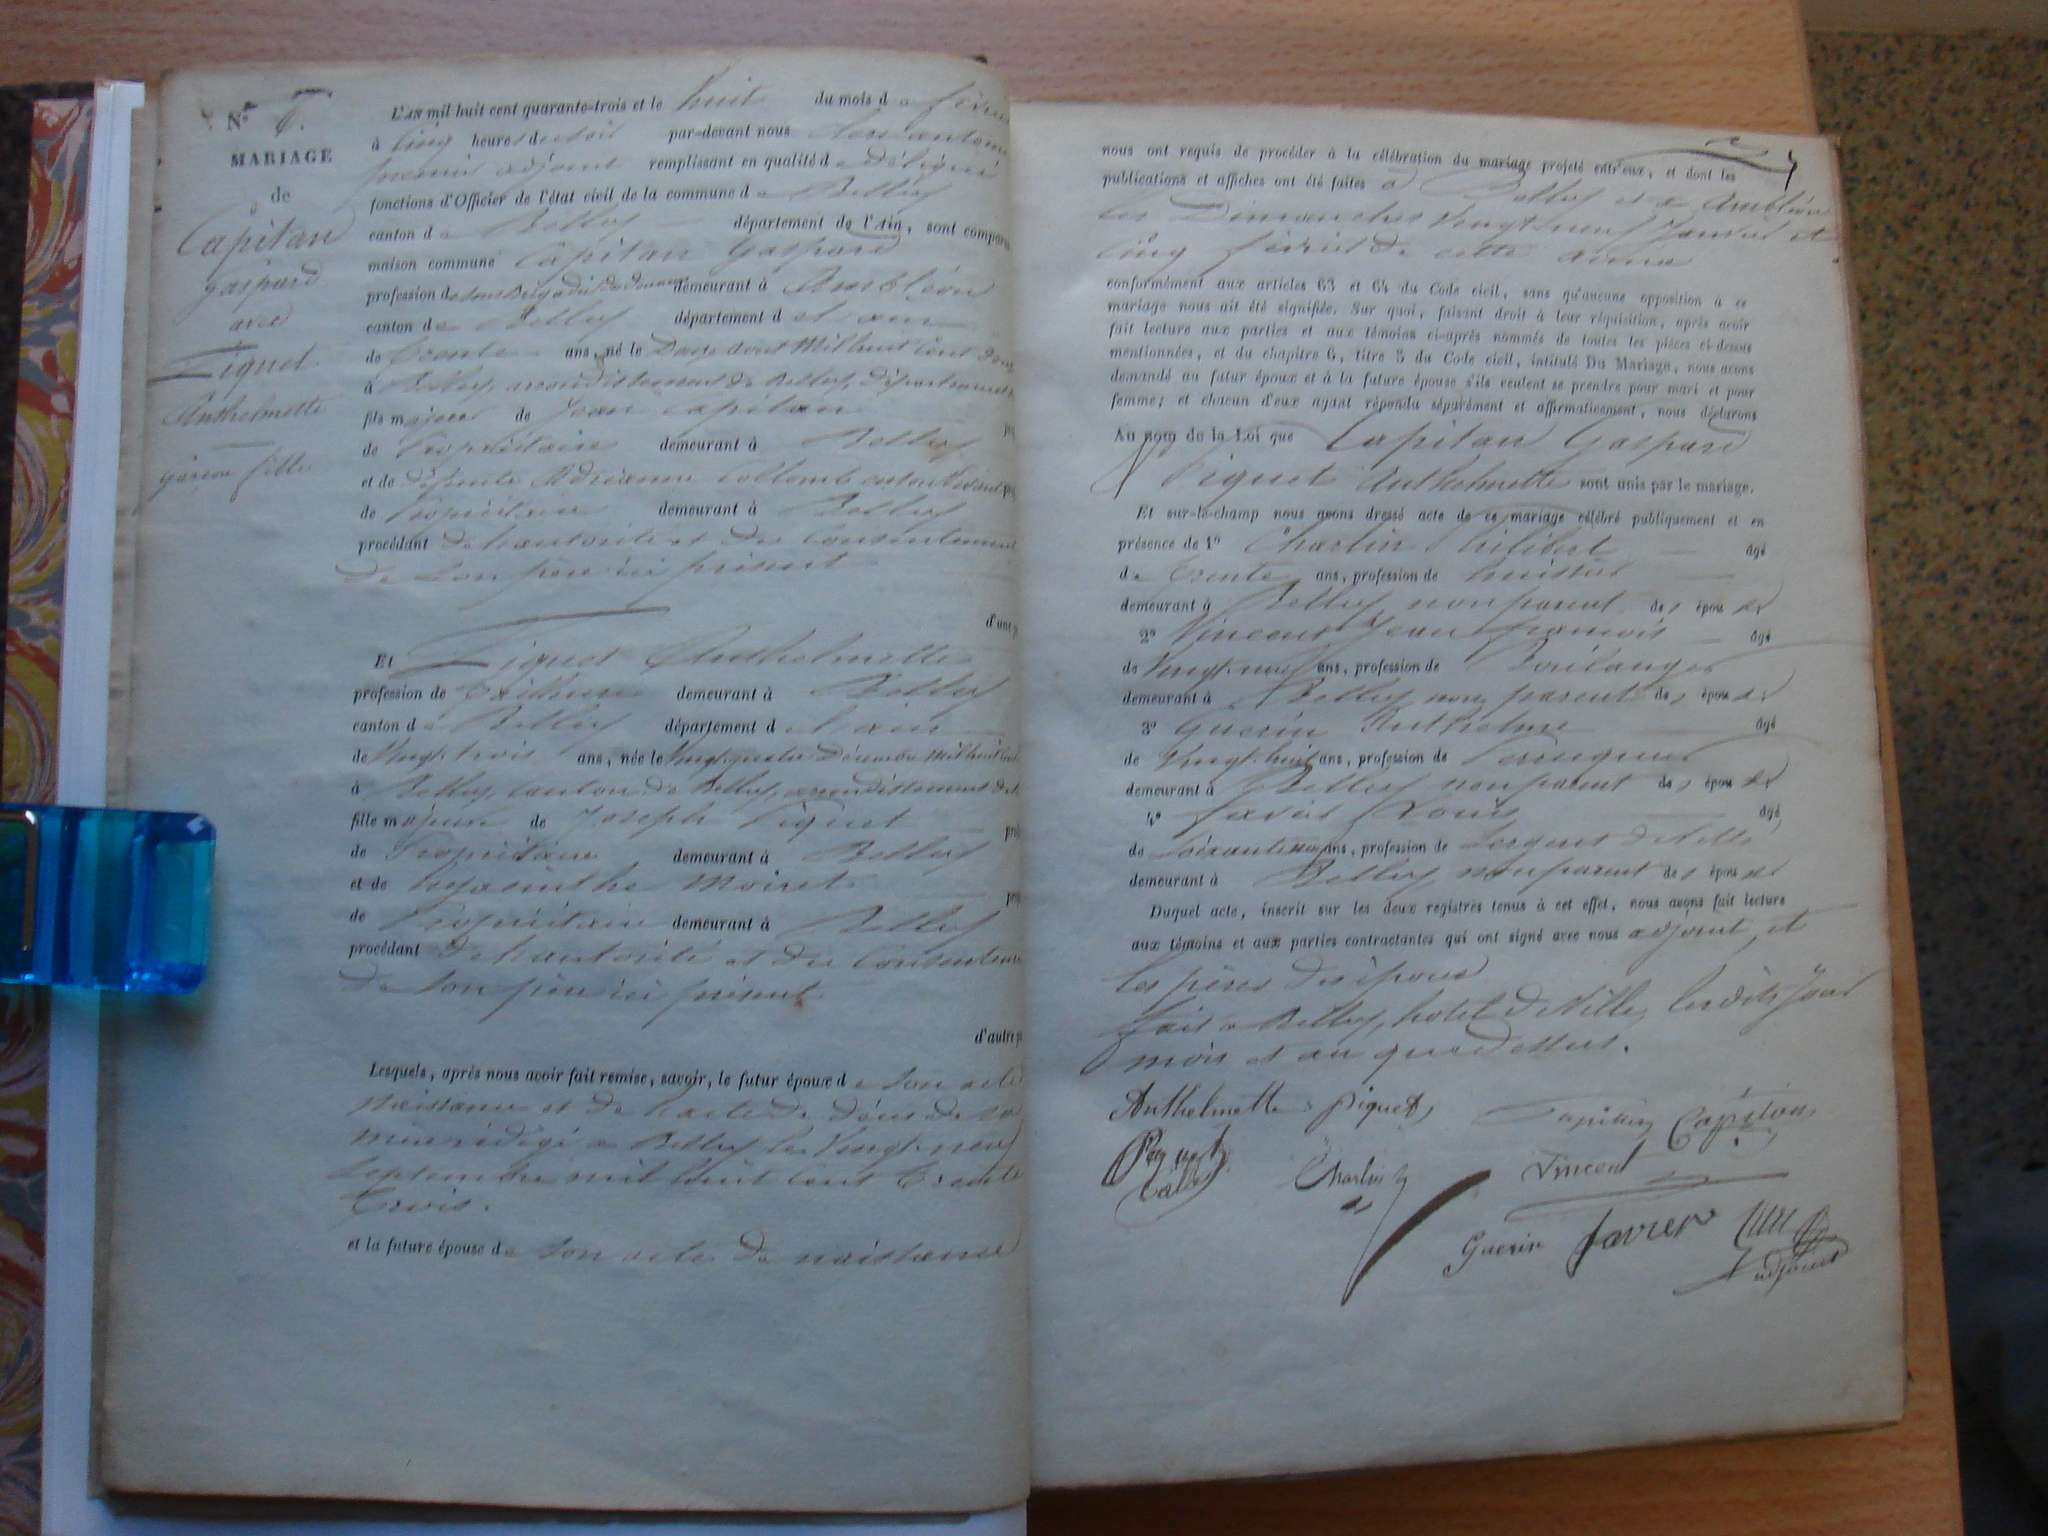 N° 6.
MARIAGE
de
Capitan
gaspard
avec
Piquet
Anthelmette
garçon fille
L'AN mil huit cent quarante-trois et le huit du mois de février
à cinq heures du soir par-devant nous
premier adjoint remplissant en qualité de délégué
fonctions d'Officier de l'état civil de la commune de Belley
canton de Belley département de l'Ain, sont comparu
maison commune Capitan Gaspard
profession de sous Brigadier des douanes demeurant à Ambléon
canton de Belley département de l'ain
de trente ans, né le Douze Aout Mil huit Cent Douze
à Belley, arrondissement de Belley, Département
fils majeur de Jean Capitan
de Propriétaire demeurant à Belley
et de défunte Adrianne Collomb
de Propriétaire demeurant à Belley
procédant de l'autorité et du consentement
de son père ici présent
d'une p
Et Piquet Anthelmette
profession de demeurant à Belley
canton de Belley département de l'ain
de Vingt-trois ans, née le Vingt-quatre Décembre Mil huit Cent
à Belley, Canton de Belley, arrondissement de
fille majeure de Joseph Piquet
de Propriétaire demeurant à Belley
et de hyacinthe Moiret
de Propriétaire demeurant à Belley
procédant de l'autorité et du Consentement
de son père ici présent.
d'autre p
Lesquels, après nous avoir fait remise, savoir, le futur époux de son acte
naissance et de l'acte de décès de sa
mère rédigé à Belley le Vingt-neuf
Septembre mil huit cent trente
trois.
et la future épouse de son acte de naissance
nous ont requis de procéder à la célébration du mariage projeté entr'eux, et dont les
publications et affiches ont été faites à Belley et à Ambléon
les Dimanches Vingt neuf Janvier et
cinq février de cette année
conformément aux articles 63 et 64 du Code civil, sans qu'aucune opposition à ce
mariage nous ait été signifiée. Sur quoi, faisant droit à leur réquisition, après avoir
fait lecture aux parties et aux témoins ci-après nommés de toutes les pièces ci-dessus
mentionnées, et du chapitre 6, titre 5 du Code civil, intitulé Du Mariage, nous avons
demandé au futur époux et à la future épouse s'ils veulent se prendre pour mari et pour
femme; et chacun d'eux ayant répondu séparément et affirmativement, nous déclarons
Au nom de la Loi que Capitan Gaspard
Piquet Anthelmette sont unis par le mariage.
Et sur-le-champ nous avons dressé acte de ce mariage célébré publiquement et en
présence de 1° Charlin Philibert âgé
de trente ans, profession de huissier
demeurant à Belley, non parent des époux
2° Vincent Jean françois âgé
de Vingt-neuf ans, profession de Boulanger
demeurant à Belley non parent des époux
3° Guerin Anthelme âgé
de Vingt-huit ans, profession de Perruquier
demeurant à Belley non parent des époux
4° favier Louis âgé
de ans, profession de Sergent de Ville
demeurant à Belley non parent des époux
Duquel acte, inscrit sur les deux registres tenus à cet effet, nous avons fait lecture
aux témoins et aux parties contractantes qui ont signé avec nous adjoint, et
les pères des époux
fait à Belley, hotel de Ville, les dits jour
mois et an que dessus.
Anthelmette Piquet Capitan Capitan
Piquet Charlin Vincent
Guerin favier
adjoint